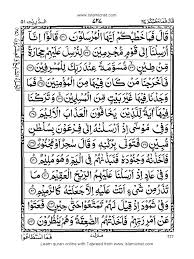 www.islamicnet.com
قَالَ فَمَا خَطْبُكُمْ اَيُّهَا الْمُرْسَلُوْنَ ۝ قَالُوْٓا اِنَّآ
اُرْسِلْنَآ اِلٰى قَوْمٍ مُّجْرِمِيْنَ ۝ لِنُرْسِلَ عَلَيْهِمْ حِجَارَةً
مِّنْ طِيْنٍ ۝ مُّسَوَّمَةً عِنْدَ رَبِّكَ لِلْمُسْرِفِيْنَ ۝
فَاَخْرَجْنَا مَنْ كَانَ فِيْهَا مِنَ الْمُؤْمِنِيْنَ ۝ فَمَا
وَجَدْنَا فِيْهَا غَيْرَ بَيْتٍ مِّنَ الْمُسْلِمِيْنَ ۝ وَتَرَكْنَا
فِيْهَآ اٰيَةً لِّلَّذِيْنَ يَخَافُوْنَ الْعَذَابَ الْاَلِيْمَ ۝ وَفِيْ
مُوْسٰٓى اِذْ اَرْسَلْنٰهُ اِلٰى فِرْعَوْنَ بِسُلْطٰنٍ
مُّبِيْنٍ ۝ فَتَوَلّٰى بِرُكْنِهٖ وَقَالَ سٰحِرٌ اَوْ مَجْنُوْنٌ ۝
فَاَخَذْنٰهُ وَجُنُوْدَهٗ فَنَبَذْنٰهُمْ فِي الْيَمِّ وَهُوَ مُلِيْمٌ ۝
وَفِيْ عَادٍ اِذْ اَرْسَلْنَا عَلَيْهِمُ الرِّيْحَ الْعَقِيْمَ ۝ مَا
تَذَرُ مِنْ شَيْءٍ اَتَتْ عَلَيْهِ اِلَّا جَعَلَتْهُ كَالرَّمِيْمِ ۝
وَفِيْ ثَمُوْدَ اِذْ قِيْلَ لَهُمْ تَمَتَّعُوْا حَتّٰى حِيْنٍ ۝ فَعَتَوْا
عَنْ اَمْرِ رَبِّهِمْ فَاَخَذَتْهُمُ الصّٰعِقَةُ وَهُمْ يَنْظُرُوْنَ ۝
فَمَا اسْتَطَاعُوْا
Learn quran online with Tajweed from www.islamicnet.com